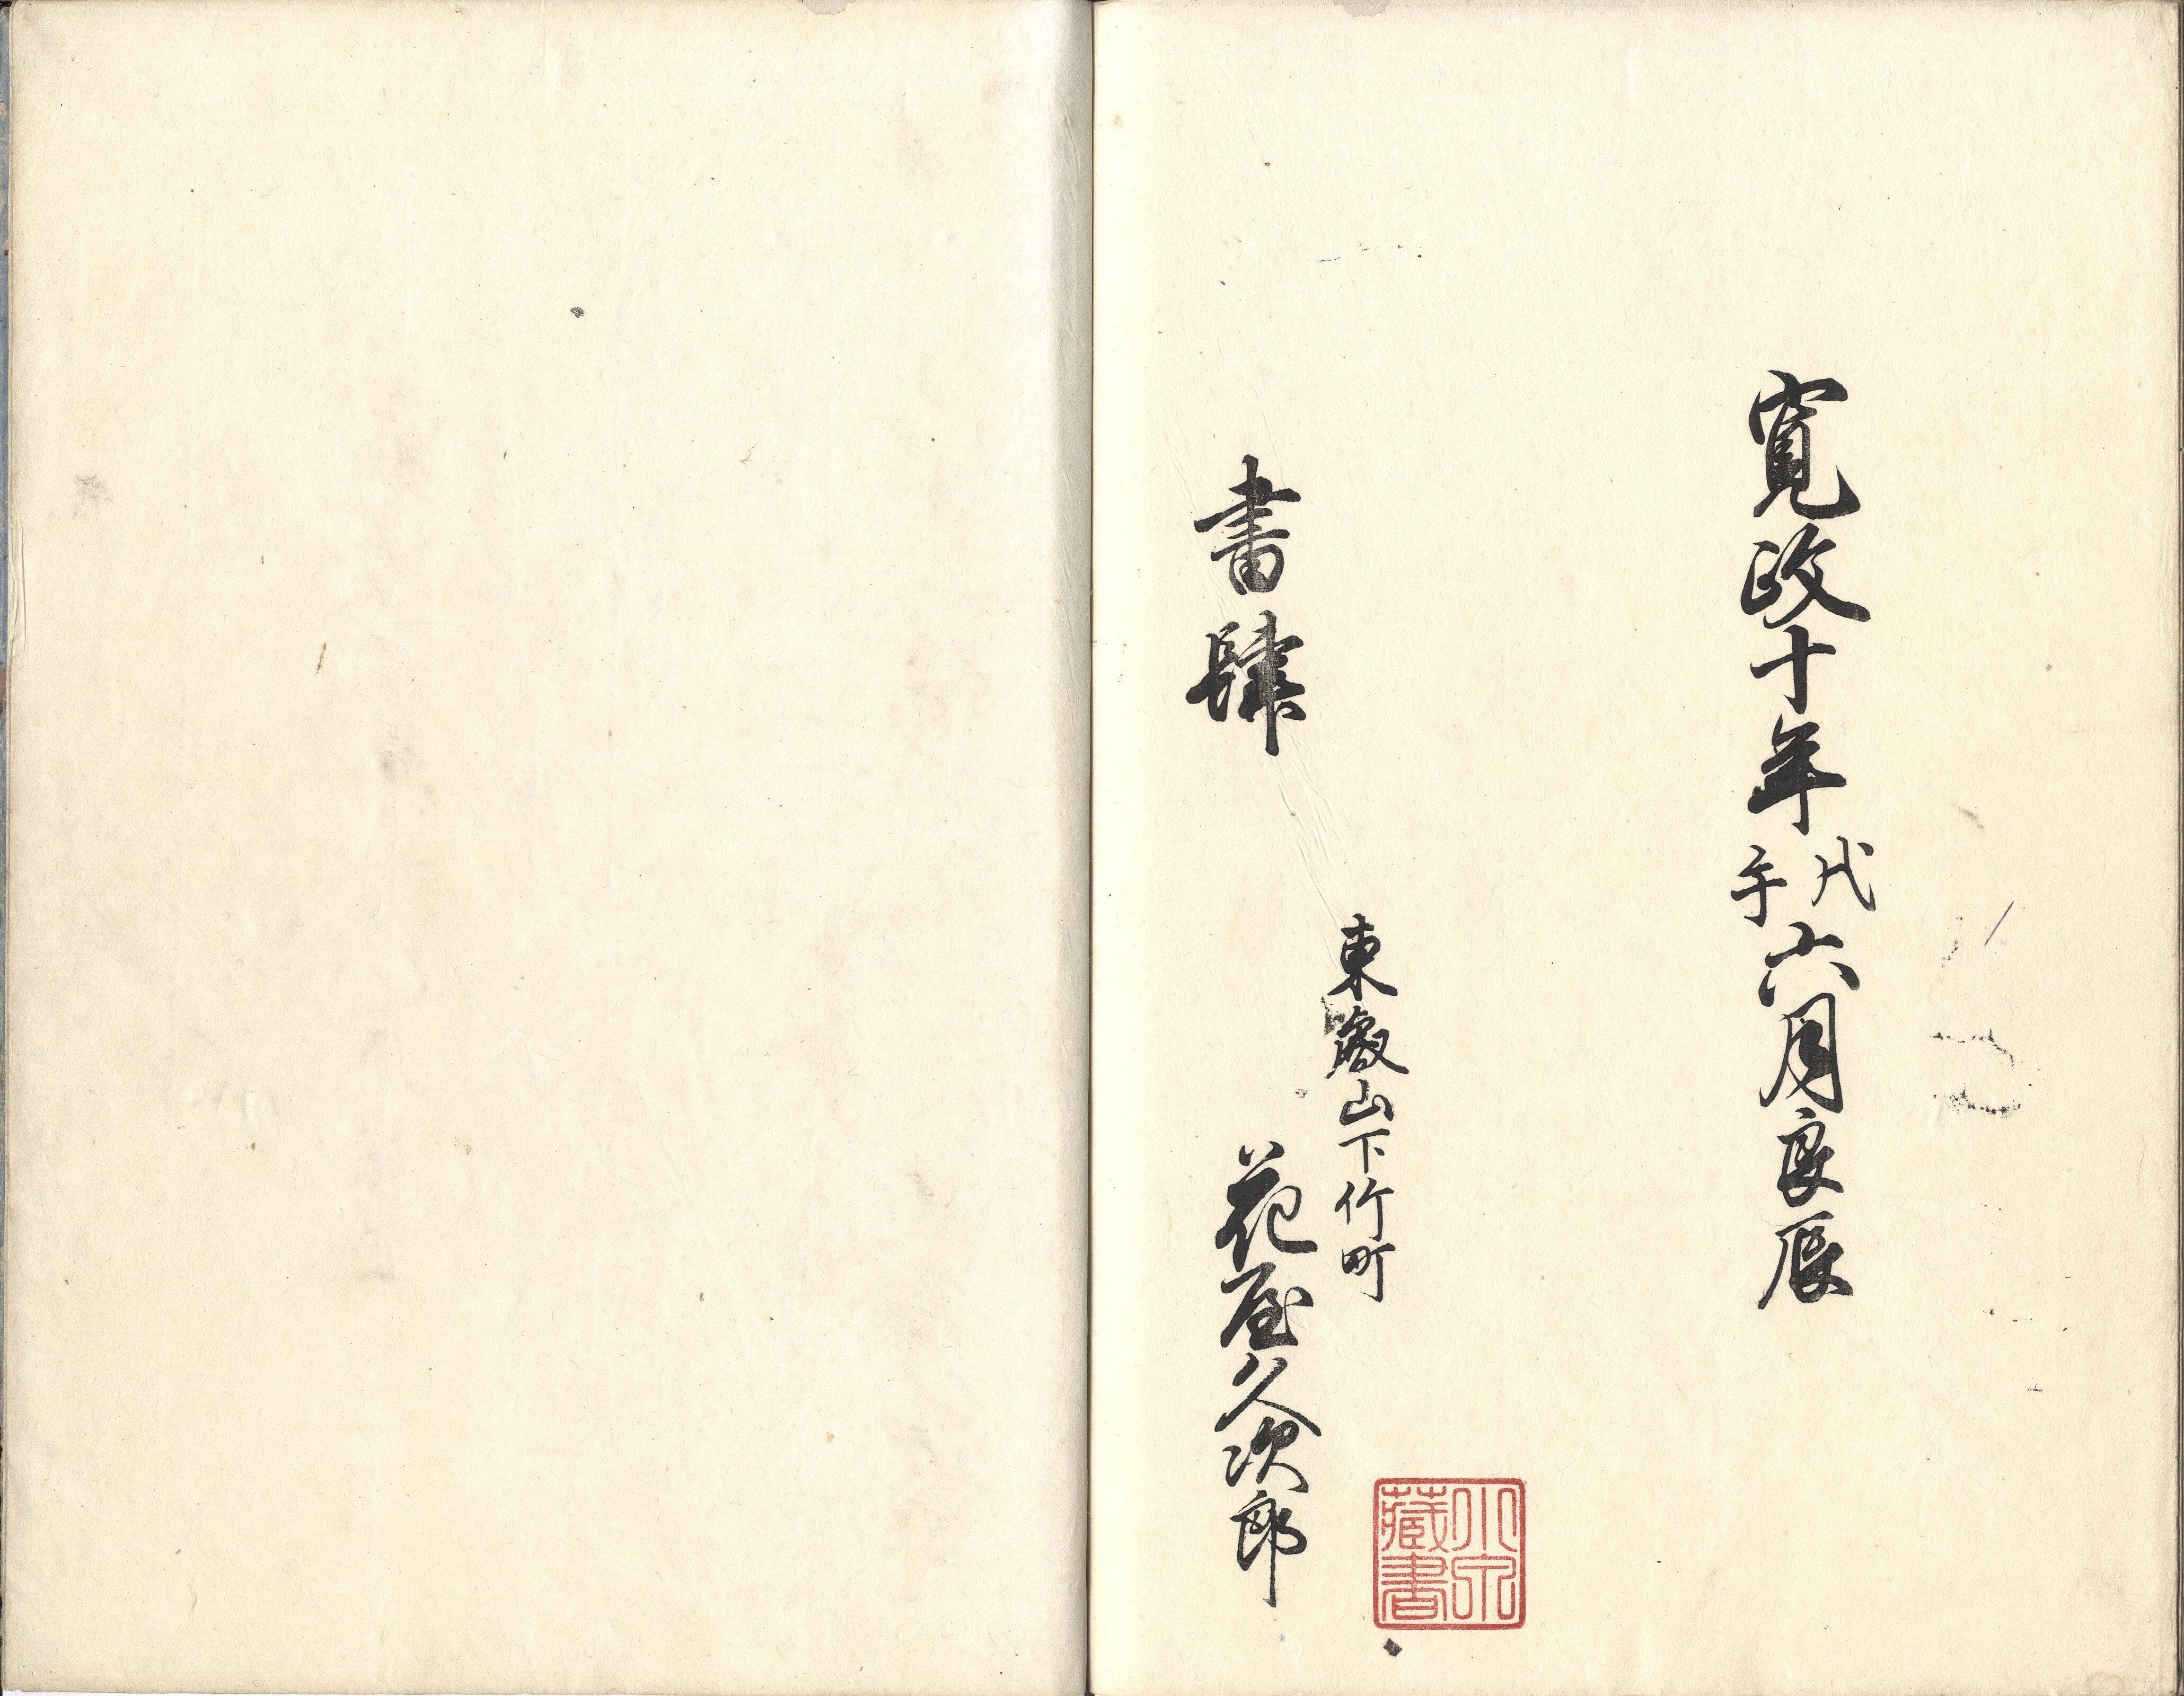 寛政十年戊午六月良辰
東叡山下竹町
書肆 花屋久次郎
小泉藏書